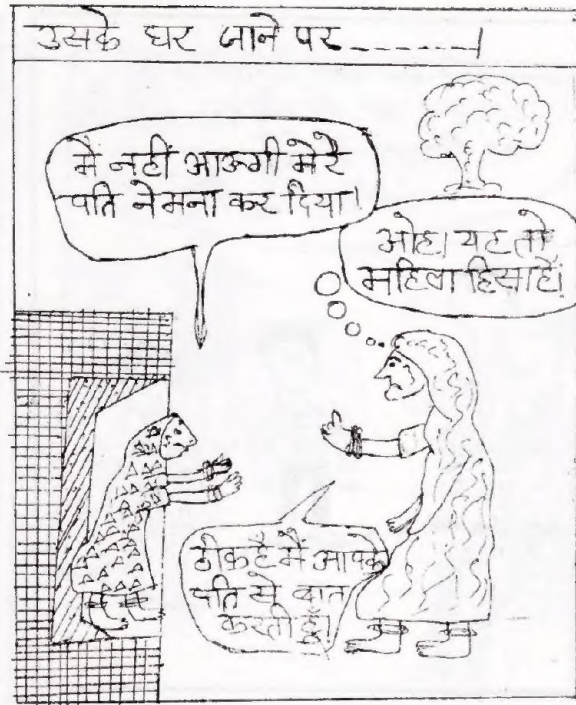 उसके घर जाने पर_ _ _ _ _ _ _।
मैं नहीं आऊगी मेरे
पति ने मना कर दिया!
ओह! यह तो
महिला हिंसा है!
ठीक है मैं आपके
पति से बात
करती हूँ!